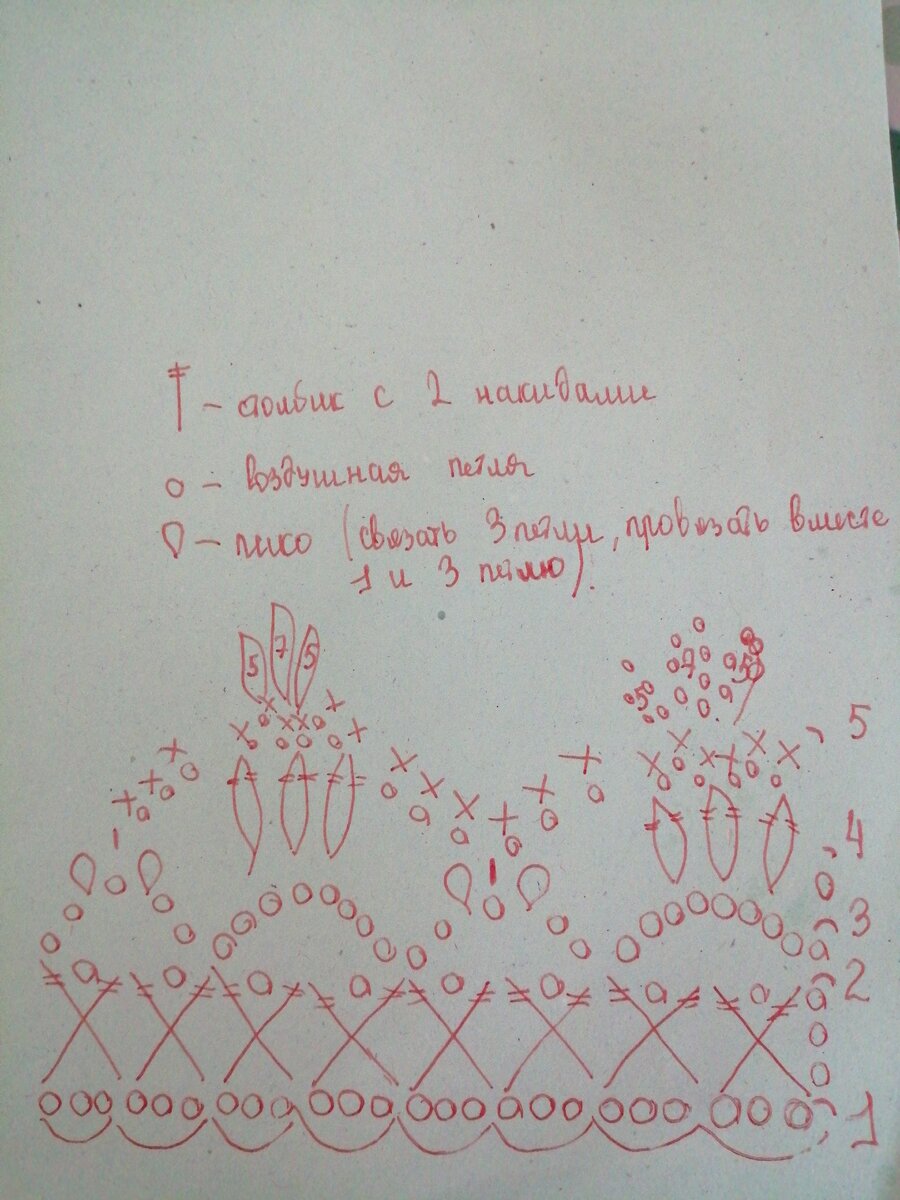 – столбик с 2 накидами
о – воздушная петля
– пико (связать 3 петли, провязать вместе
1 и 3 петлю).
5 7 5
5 7 5
5
4
3
2
1